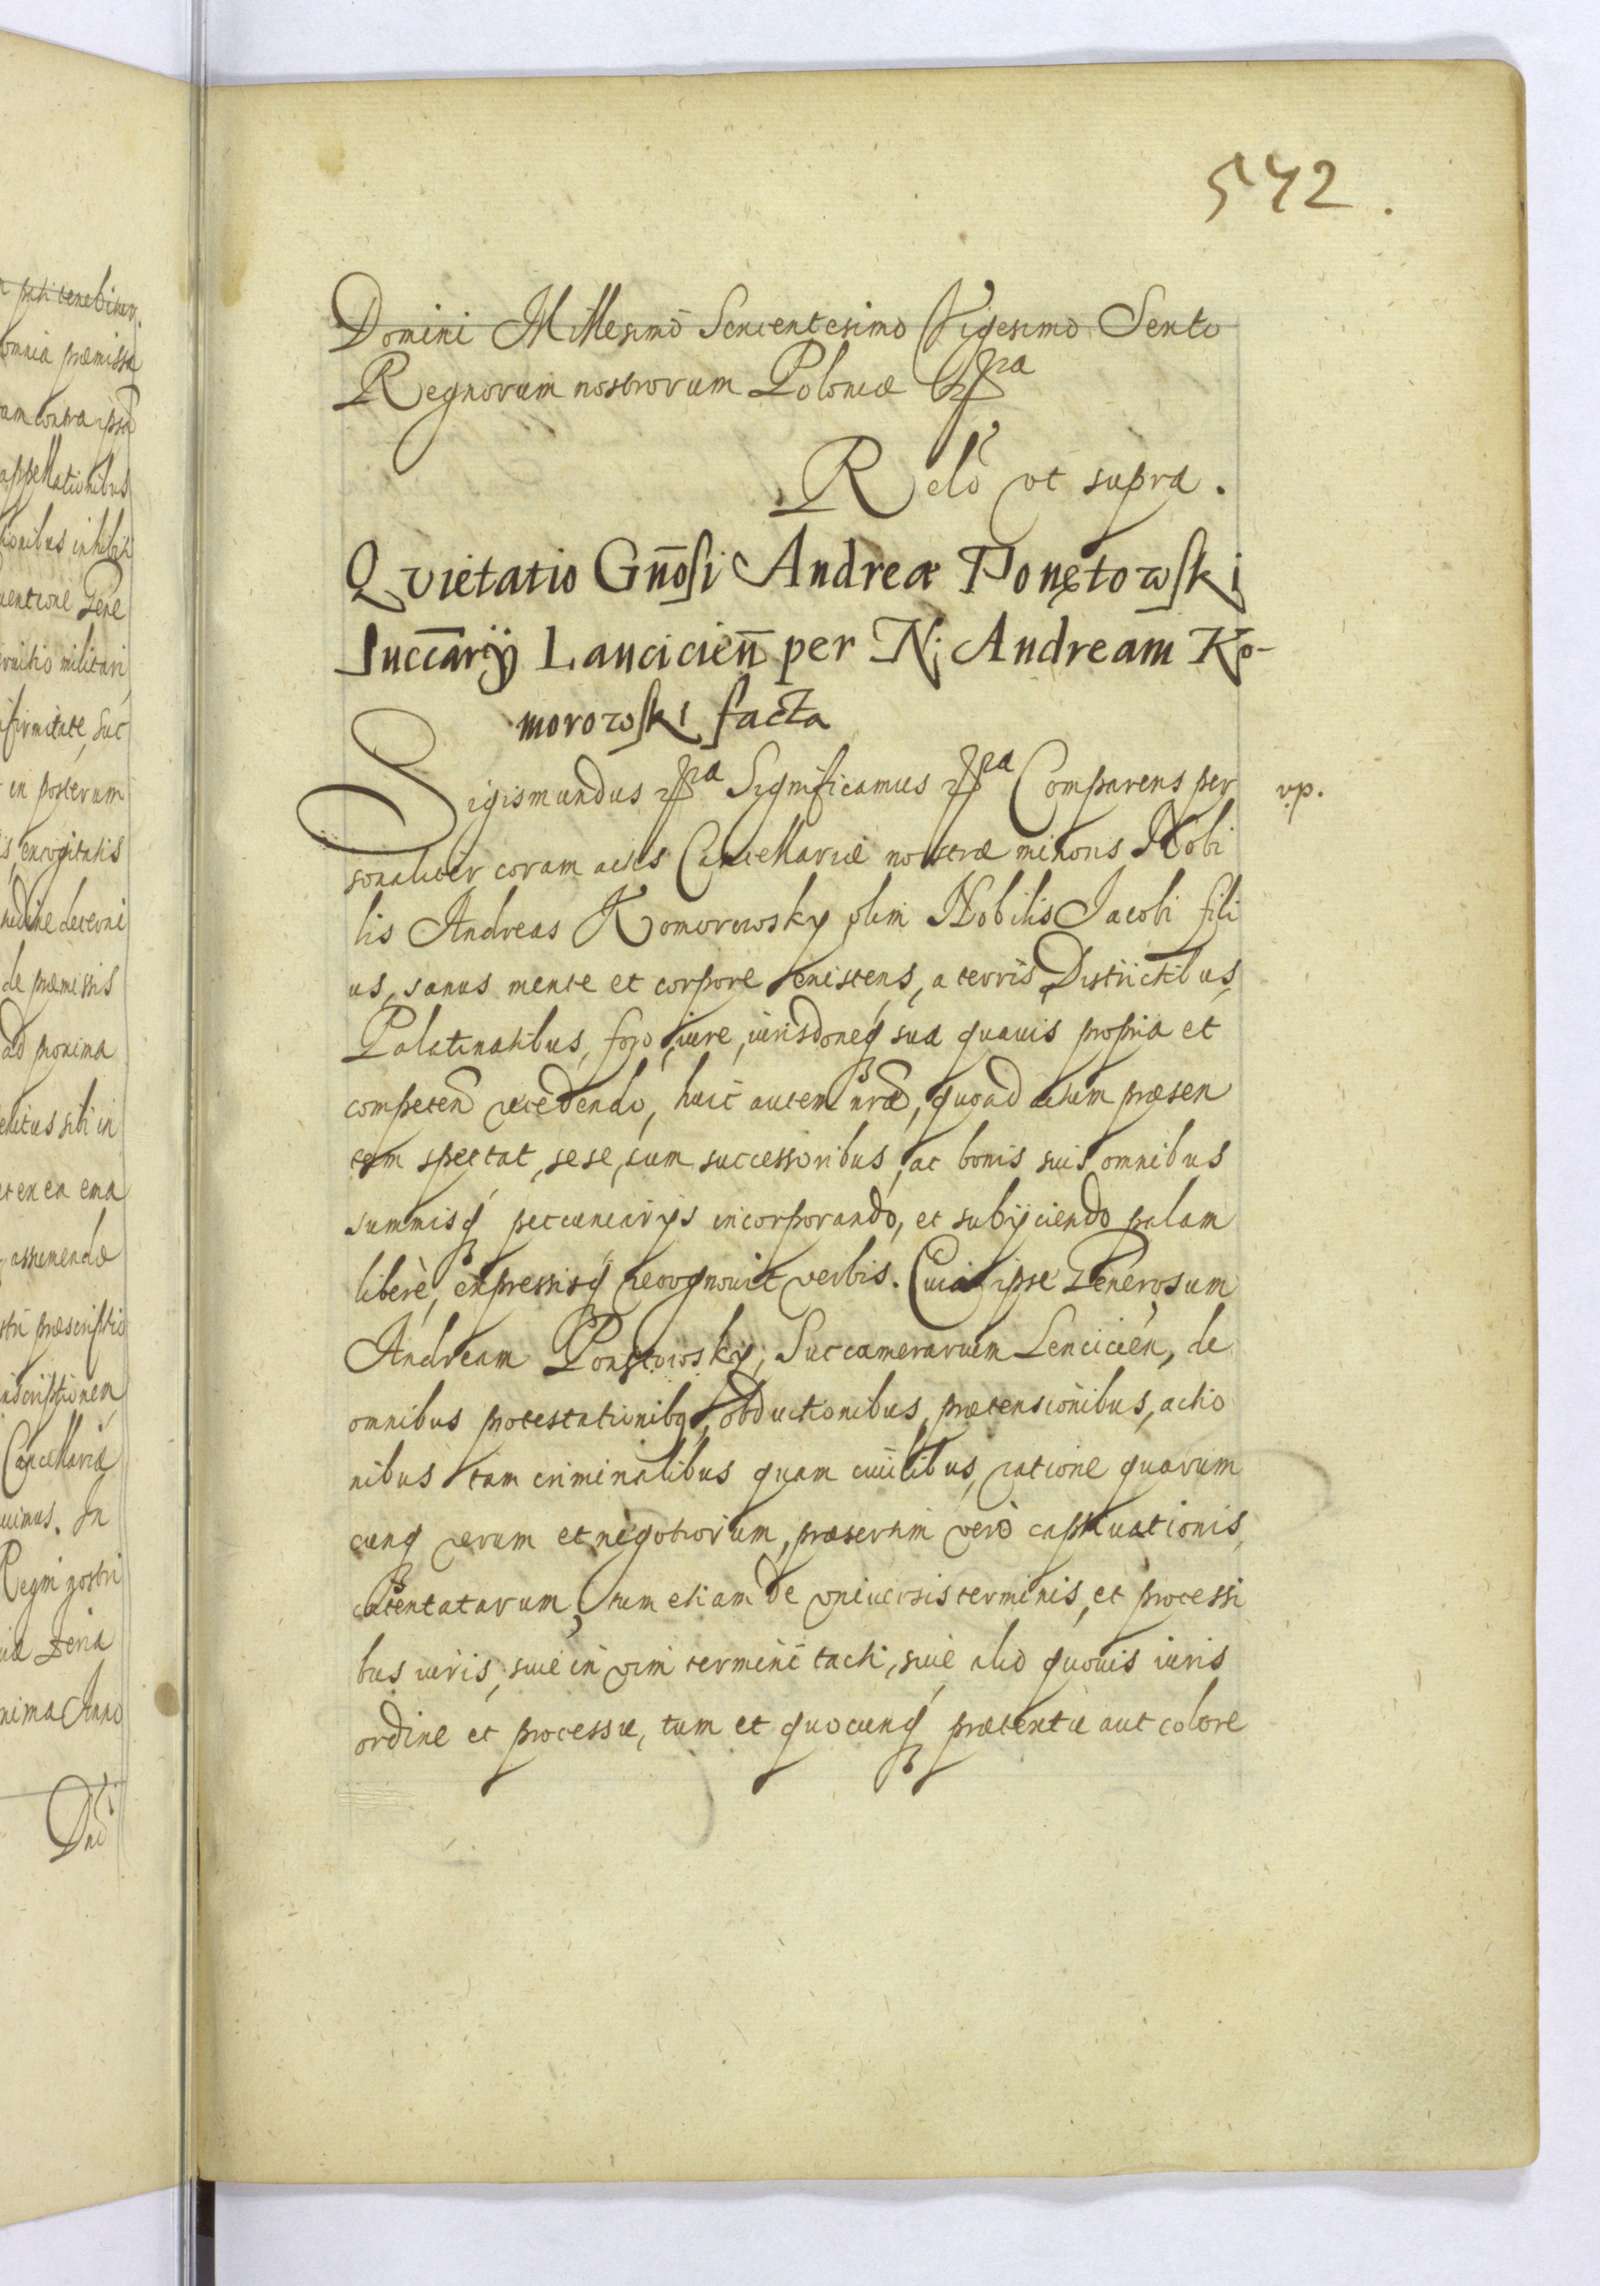 542.
Domini Millesimo Sexcentesimo Vigesimo Sexto
Regnorum nostrorum Poloniæ &ra
Relõ vt supra.
Qvietatio Gñosi Andreæ Ponętowski
Succ̄arÿ Lancicieñ per N: Andream Ko-
morowski facta
Sigismundus &ra Significamus &ra Comparens per
v.p.
sonaliter coram actis Cancellariæ nostræ minoris Nobi
lis Andreas Komorowsky olim Nobilis Jacobi fili
us, sanus mente et corpore existens, a terris Districtibus,
Palatinatibus, foro, iure, iurisdoneq sua quauis propria et
competeñ recedendo, huic autem nræ, quoad actum præsen
tem spectat, sese, cum successoribus, ac bonis suis omnibus
summisq pecuniarijs incorporando, et subijciendo palam
liberè, expressisq recognouit verbis. Quia ipse Generosum
Andream Ponętowsky, Succamerarium Lencicień, de
omnibus protestationibq, obductionibus, prætensionibus, actio
nibus tam criminalibus quam ciuilibus, ratione quarum
cunq rerum et negotiorum, præsertim verò captiuationis,
attentatarum, tum etiam de vniuersis terminis, et processi
bus iuris, siue in vim termini tacti, siue alio quouis iuris
ordine et processu, tum et quocunq prætextu aut colore
præmissa
contra
appellationibus
Gene
militari
in posterum
de præmissis
ad proxima
sibi in
et ex ea
assumendæ
Cancellariæ
In
Regni nostri
Anno
Dni